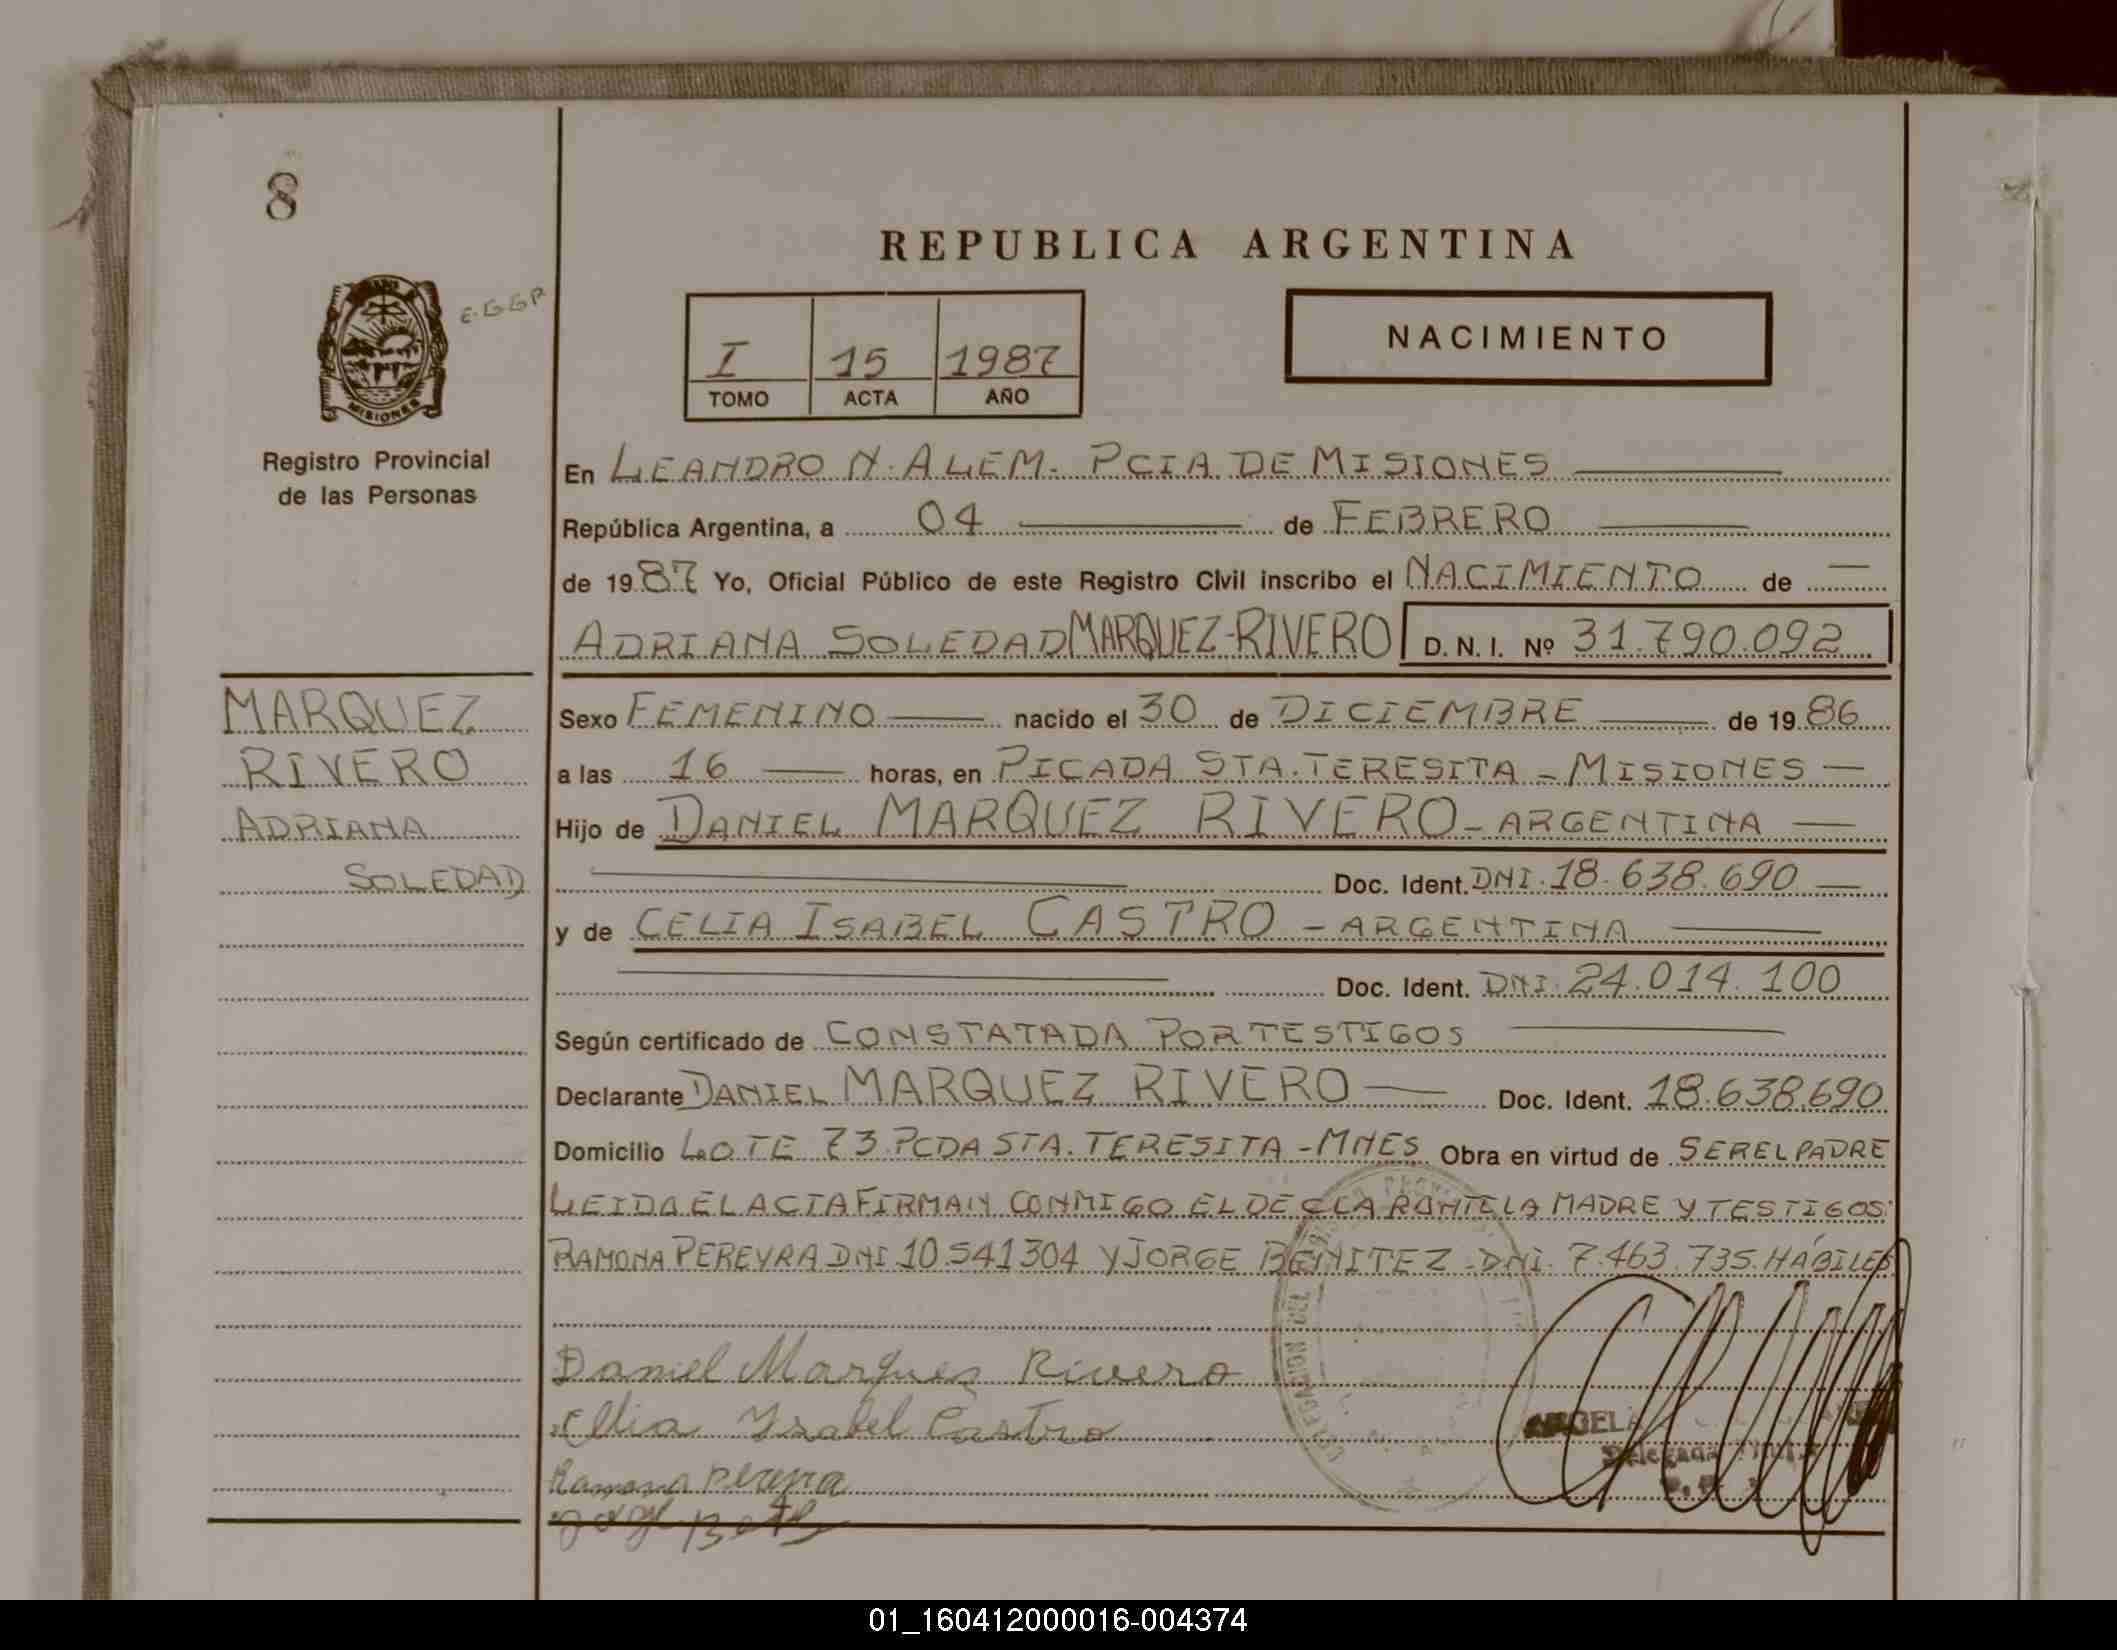 8
E.GGP
MISIONES
Registro Provincial
de las Personas
MARQUEZ
RIVERO
ADRIANA
SOLEDAD
REPUBLICA ARGENTINA
I 15 1987
TOMO ACTA AÑO
NACIMIENTO
En LEANDRO N. ALEM. PCIA DE MISIONES
República Argentina, a 04 de FEBRERO
de 1987 Yo, Oficial Público de este Registro Civil inscribo el NACIMIENTO de
ADRIANA SOLEDAD MARQUEZ-RIVERO D.N.I. Nº 31.790.092
Sexo FEMENINO nacido el 30 de DICIEMBRE de 1986
a las 16 horas, en PICADA STA. TERESITA - MISIONES
Hijo de DANIEL MARQUEZ RIVERO - ARGENTINA
Doc. Ident. DNI. 18.638.690
y de CELIA ISABEL CASTRO - ARGENTINA
Doc. Ident. DNI. 24.014.100
Según certificado de CONSTATADA POR TESTIGOS
Declarante DANIEL MARQUEZ RIVERO Doc. Ident. 18.638.690
Domicilio LOTE 73. PCDA STA. TERESITA - MNES Obra en virtud de SER EL PADRE
LEIDA EL ACTA FIRMAN CONMIGO EL DECLARANTE LA MADRE Y TESTIGOS:
RAMONA PEREYRA DNI 10.541304 Y JORGE BENITEZ - DNI. 7.463.735. HÁBILES
Daniel Marquez Rivero
Celia Ysabel Castro
Ramona Pereyra
DELEGACION DEL
Delegada
01_160412000016-004374